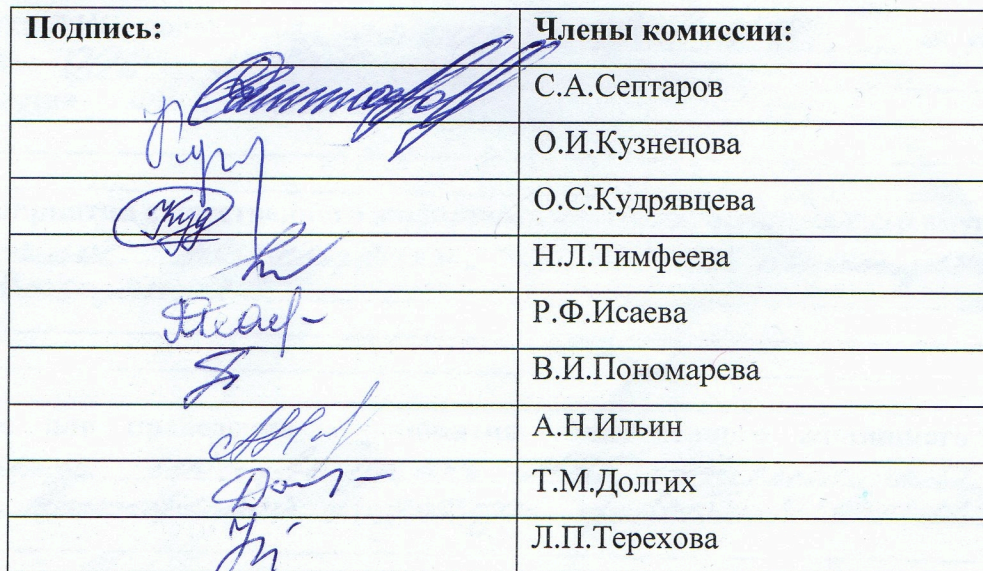 Подпись: Члены комиссии:
С.А.Септаров
О.И.Кузнецова
Куд О.С.Кудрявцева
Н.Л.Тимфеева
Р.Ф.Исаева
В.И.Пономарева
А.Н.Ильин
Т.М.Долгих
Л.П.Терехова